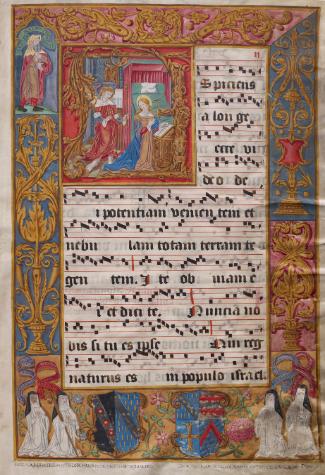 Spiciens
a lon ge
ecce vi
de o de
i potentiam venien tem et
nebu lam totam terram te
gen tem. I te ob viam e
i et dici te. Nuncia no
bis si tu es ipse Qui reg
naturus es in populo israel